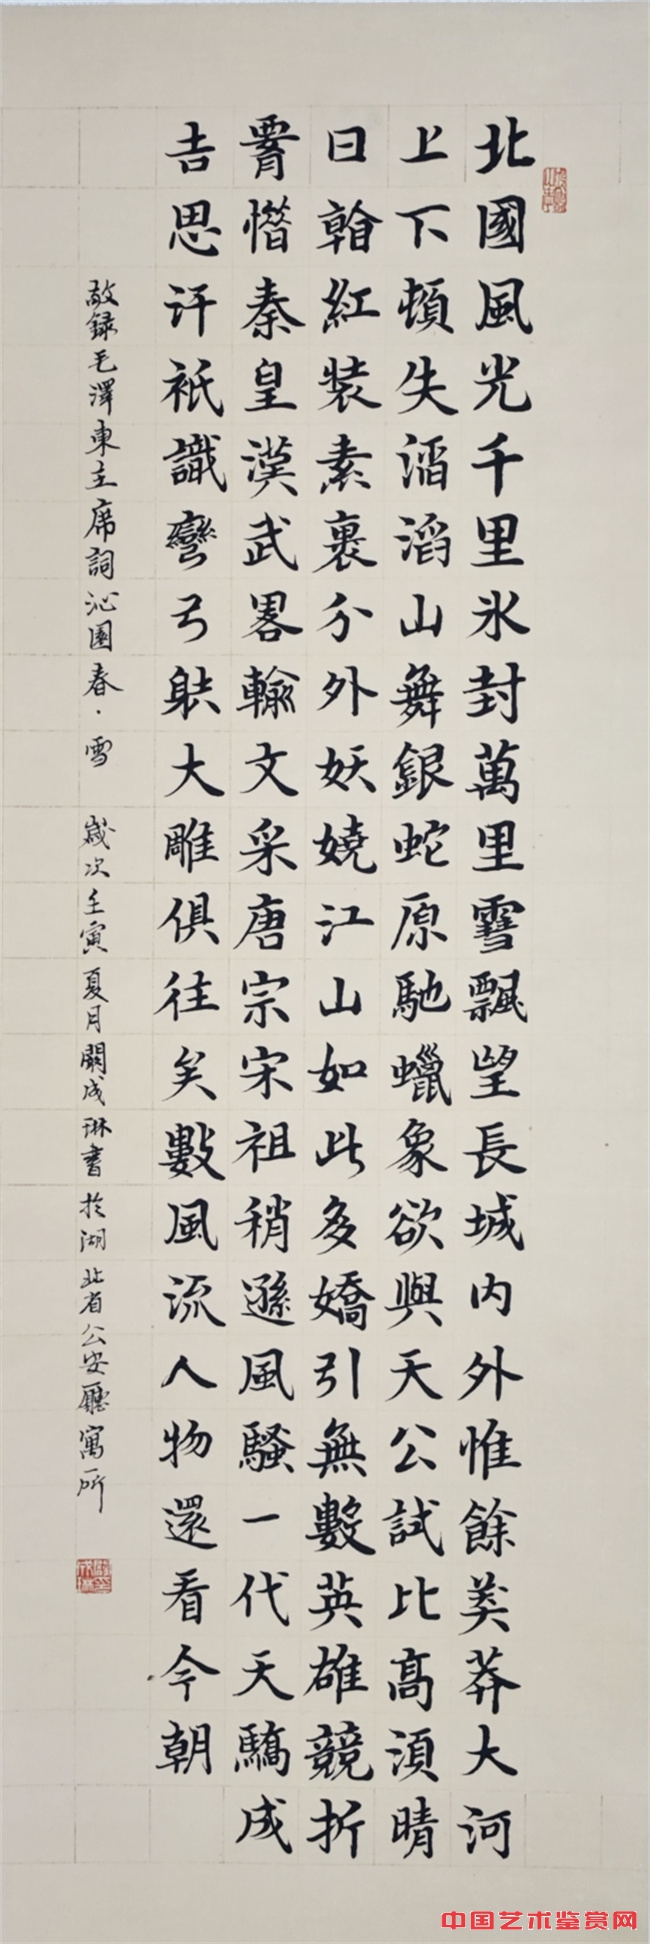 北國風光千里冰封萬里雪飄望長城內外惟餘莽莽大河
上下頓失滔滔山舞銀蛇原馳蠟象欲與天公試比高須晴
日看紅裝素裹分外妖嬈江山如此多嬌引無數英雄競折
腰惜秦皇漢武畧輸文采唐宗宋祖稍遜風騷一代天驕成
吉思汗衹識彎弓射大雕俱往矣數風流人物還看今朝
敬録毛澤東主席詞沁園春·雪 歲次壬寅夏月闕成琳書於湖北省公安廳寓所
中国艺术鉴赏网